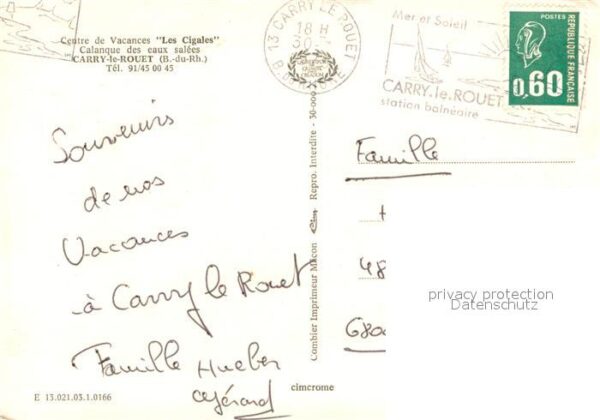 Centre de Vacances "Les Cigales"
Calanque des eaux salées
CARRY-le-ROUET (B.-du-Rh.)
Tél. 91/45 00 45
13 CARRY LE ROUET
18 H
30
Mer et Soleil
CARRY.le.ROUET
station balnéaire
POSTES
0,60
REPUBLIQUE FRANÇAISE
Souvenirs
de nos
Vacances
à Carry le Rouet
Famille Hueber
Gérard
Combier Imprimeur Mâcon
Repro. Interdite - 30-000
cimcrome
E 13.021.03.1.0166
Famille
48
680
privacy protection
Datenschutz